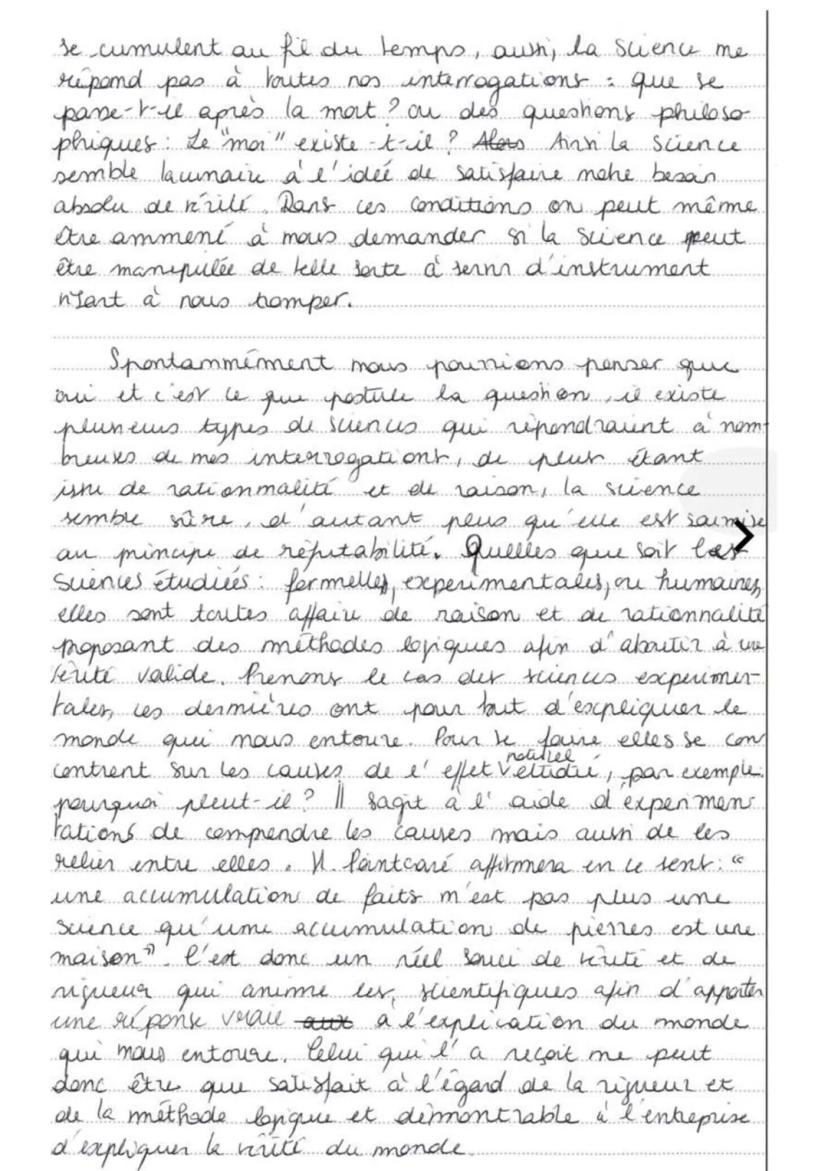 se cumulent au fil du temps, aussi, la science ne
répond pas à toutes nos interrogations : que se
passe-t-il après la mort ? ou des questions philoso-
phiques : Le "moi" existe-t-il ? Alors Ainsi la science
semble lacunaire à l'idée de satisfaire notre besoin
absolu de vérité. Dans ces conditions on peut même
être ammené à nous demander si la science peut
être manipulée de telle sorte à servir d'instrument
visant à nous tromper.
Spontammément nous pourrions penser que
oui et c'est ce que postule la question, il existe
plusieurs types de sciences qui répondraient à nom-
breuses de nos interrogations, de plus étant
issu de rationnalité et de raison, la science
semble sûre, d'autant plus qu'elle est soumise
au principe de réfutabilité. Quelles que soit les
sciences étudiées : formelles, experimentales, ou humaines,
elles sont toutes affaire de raison et de rationnalité
proposant des méthodes logiques afin d'aboutir à une
vérité valide. Prenons le cas des sciences experimen-
tales, ces dernières ont pour but d'expliquer le
monde qui nous entoure. Pour se faire elles se con
centrent sur les causes de l'effet naturel étudié, par exemple
pourquoi pleut-il ? Il sagit à l'aide d'expérimen-
tations de comprendre les causes mais aussi de les
relier entre elles. H. Pointcaré affirmera en ce sens : "
une accumulation de faits n'est pas plus une
science qu'une accumulation de pierres est une
maison". C'est donc un réel souci de vérité et de
rigueur qui anime les scientifiques afin d'apporter
une réponse vraie aux à l'explication du monde
qui nous entoure. Celui qui l'a reçoit ne peut
donc être que satisfait à l'égard de la rigueur et
de la méthode logique et démontrable à l'entreprise
d'expliquer la vérité du monde.